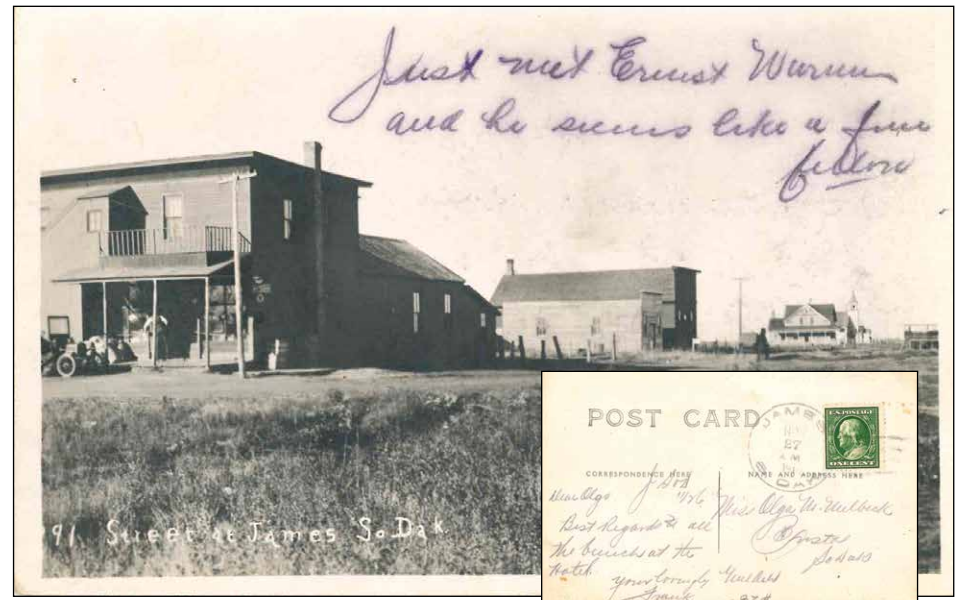 Just met Ernest
and he seems like a fine
fellow
91. Street at James So Dak
POST CARD
JAMES
27
AM
S. DAK
U.S. POSTAGE
ONE CENT
CORRESPONDENCE HERE
NAME AND ADDRESS HERE
Dear Olga
Best Regards to all
the bunch at the
Hotel
yours lovingly
Frank
Miss Olga M.
So Dak